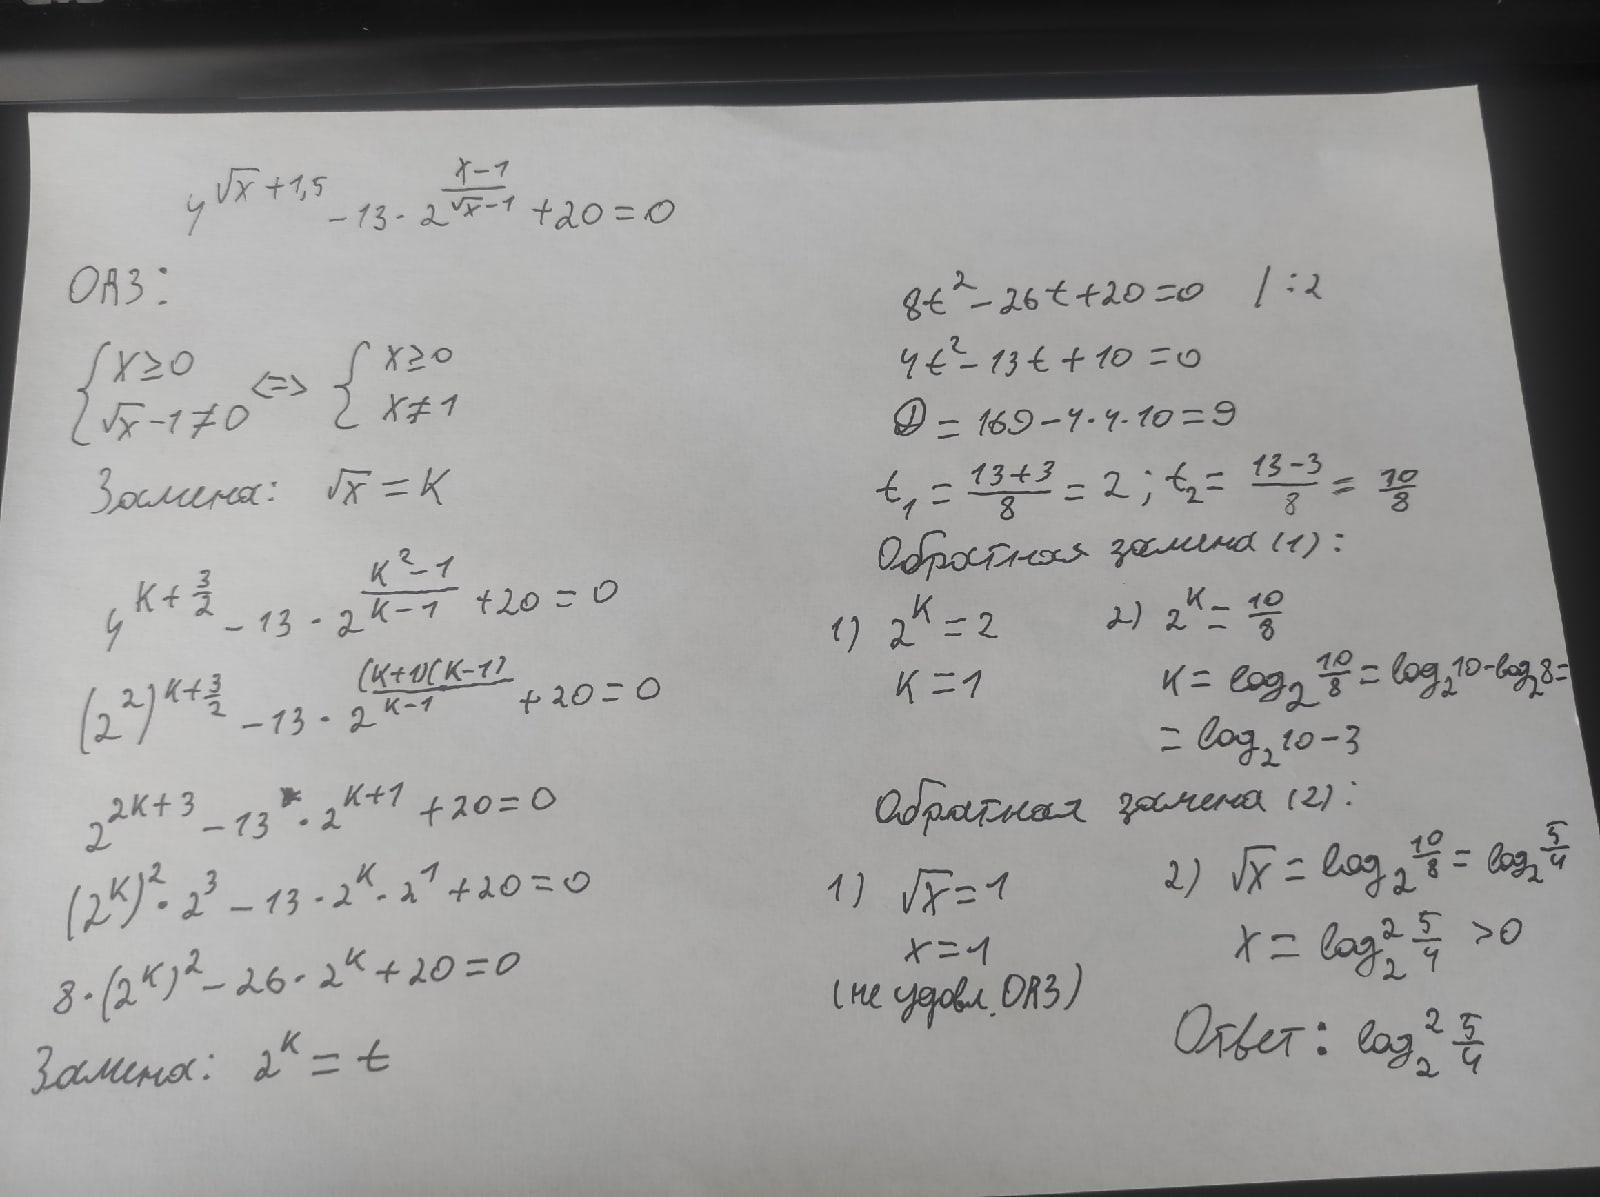 4^(√x+1,5) - 13 · 2^((x-1)/(√x-1)) + 20 = 0
ОДЗ:
{ x ≥ 0
√x - 1 ≠ 0 <=> { x ≥ 0
x ≠ 1
Замена: √x = K
4^(K+3/2) - 13 · 2^((K²-1)/(K-1)) + 20 = 0
(2²)^(K+3/2) - 13 · 2^((K+1)(K-1)/(K-1)) + 20 = 0
2^(2K+3) - 13 · 2^(K+1) + 20 = 0
(2^K)² · 2³ - 13 · 2^K · 2¹ + 20 = 0
8 · (2^K)² - 26 · 2^K + 20 = 0
Замена: 2^K = t
8t² - 26t + 20 = 0 / :2
4t² - 13t + 10 = 0
D = 169 - 4·4·10 = 9
t₁ = (13+3)/8 = 2 ; t₂ = (13-3)/8 = 10/8
Обратная замена (1):
1) 2^K = 2
K = 1
2) 2^K = 10/8
K = log₂ 10/8 = log₂10 - log₂8 =
= log₂10 - 3
Обратная замена (2):
1) √x = 1
x = 1
(не удовл. ОДЗ)
2) √x = log₂ 10/8 = log₂ 5/4
x = log₂² 5/4 > 0
Ответ: log₂² 5/4